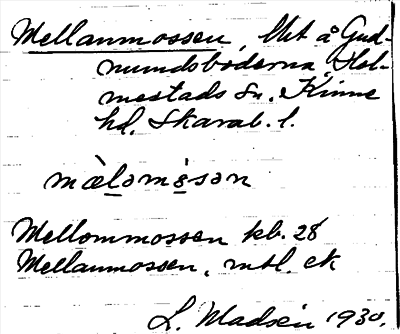 Mellanmossen, tkt å Gud-
mundsboderna, Hol-
mestads sn. Kinne
hd. Skarab. l.
mälomåsən
Mellommossen kb. 28
Mellanmossen, mtl. ek
L. Madsén 1930.